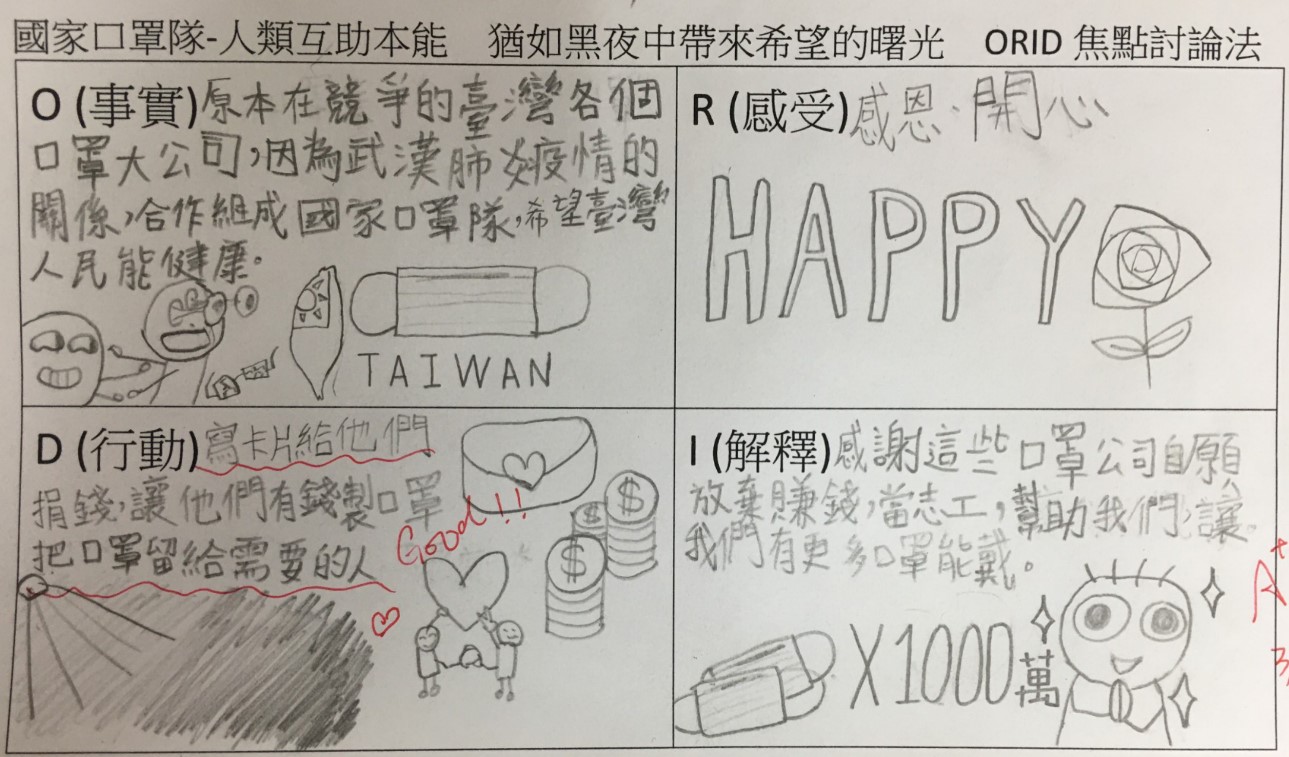 國家口罩隊-人類互助本能　猶如黑夜中帶來希望的曙光　ORID 焦點討論法
O (事實)原本在競爭的臺灣各個
口罩大公司,因為武漢肺炎疫情的
關係,合作組成國家口罩隊,希望臺灣
人民能健康。
TAIWAN
R (感受)感恩、開心
HAPPY
D (行動)寫卡片給他們
捐錢,讓他們有錢製口罩
把口罩留給需要的人
Good!!
$
$
$
I (解釋)感謝這些口罩公司自願
放棄賺錢,當志工,幫助我們,讓
我們有更多口罩能戴。
X1000萬
A+